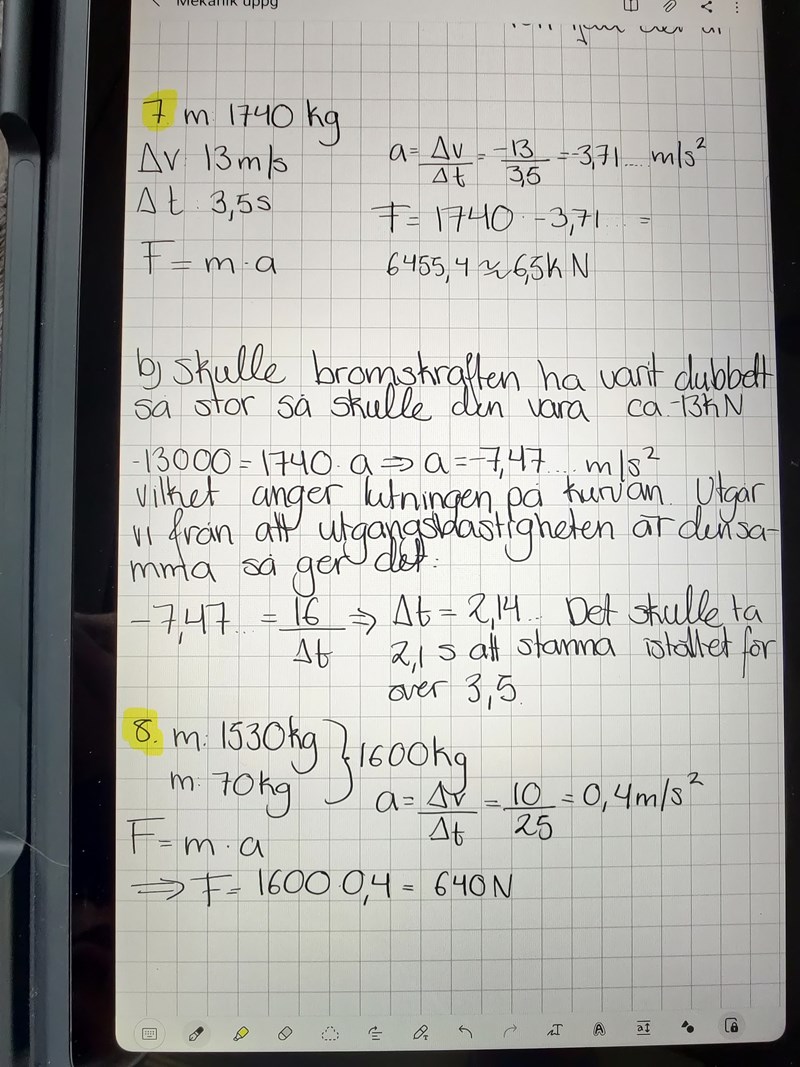 Mekanik uppg
7 m: 1740 kg
Δv: 13 m/s
Δt: 3,5 s
F = m · a
a = Δv/Δt = -13/3,5 = -3,71... m/s²
F = 1740 · -3,71... =
6455,4 ≈ 6,5kN
b) Skulle bromskraften ha varit dubbelt
så stor så skulle den vara ca -13kN
-13000 = 1740 · a ⇒ a = -7,47... m/s²
vilket anger lutningen på kurvan. Utgår
vi från att utgångshastigheten är densa-
mma så ger det:
-7,47... = 16/Δt ⇒ Δt = 2,14... Det skulle ta
2,1 s att stanna istället för
över 3,5.
8. m: 1530kg } 1600kg
m: 70kg
a = Δv/Δt = 10/25 = 0,4 m/s²
F = m · a
⇒ F = 1600 · 0,4 = 640N